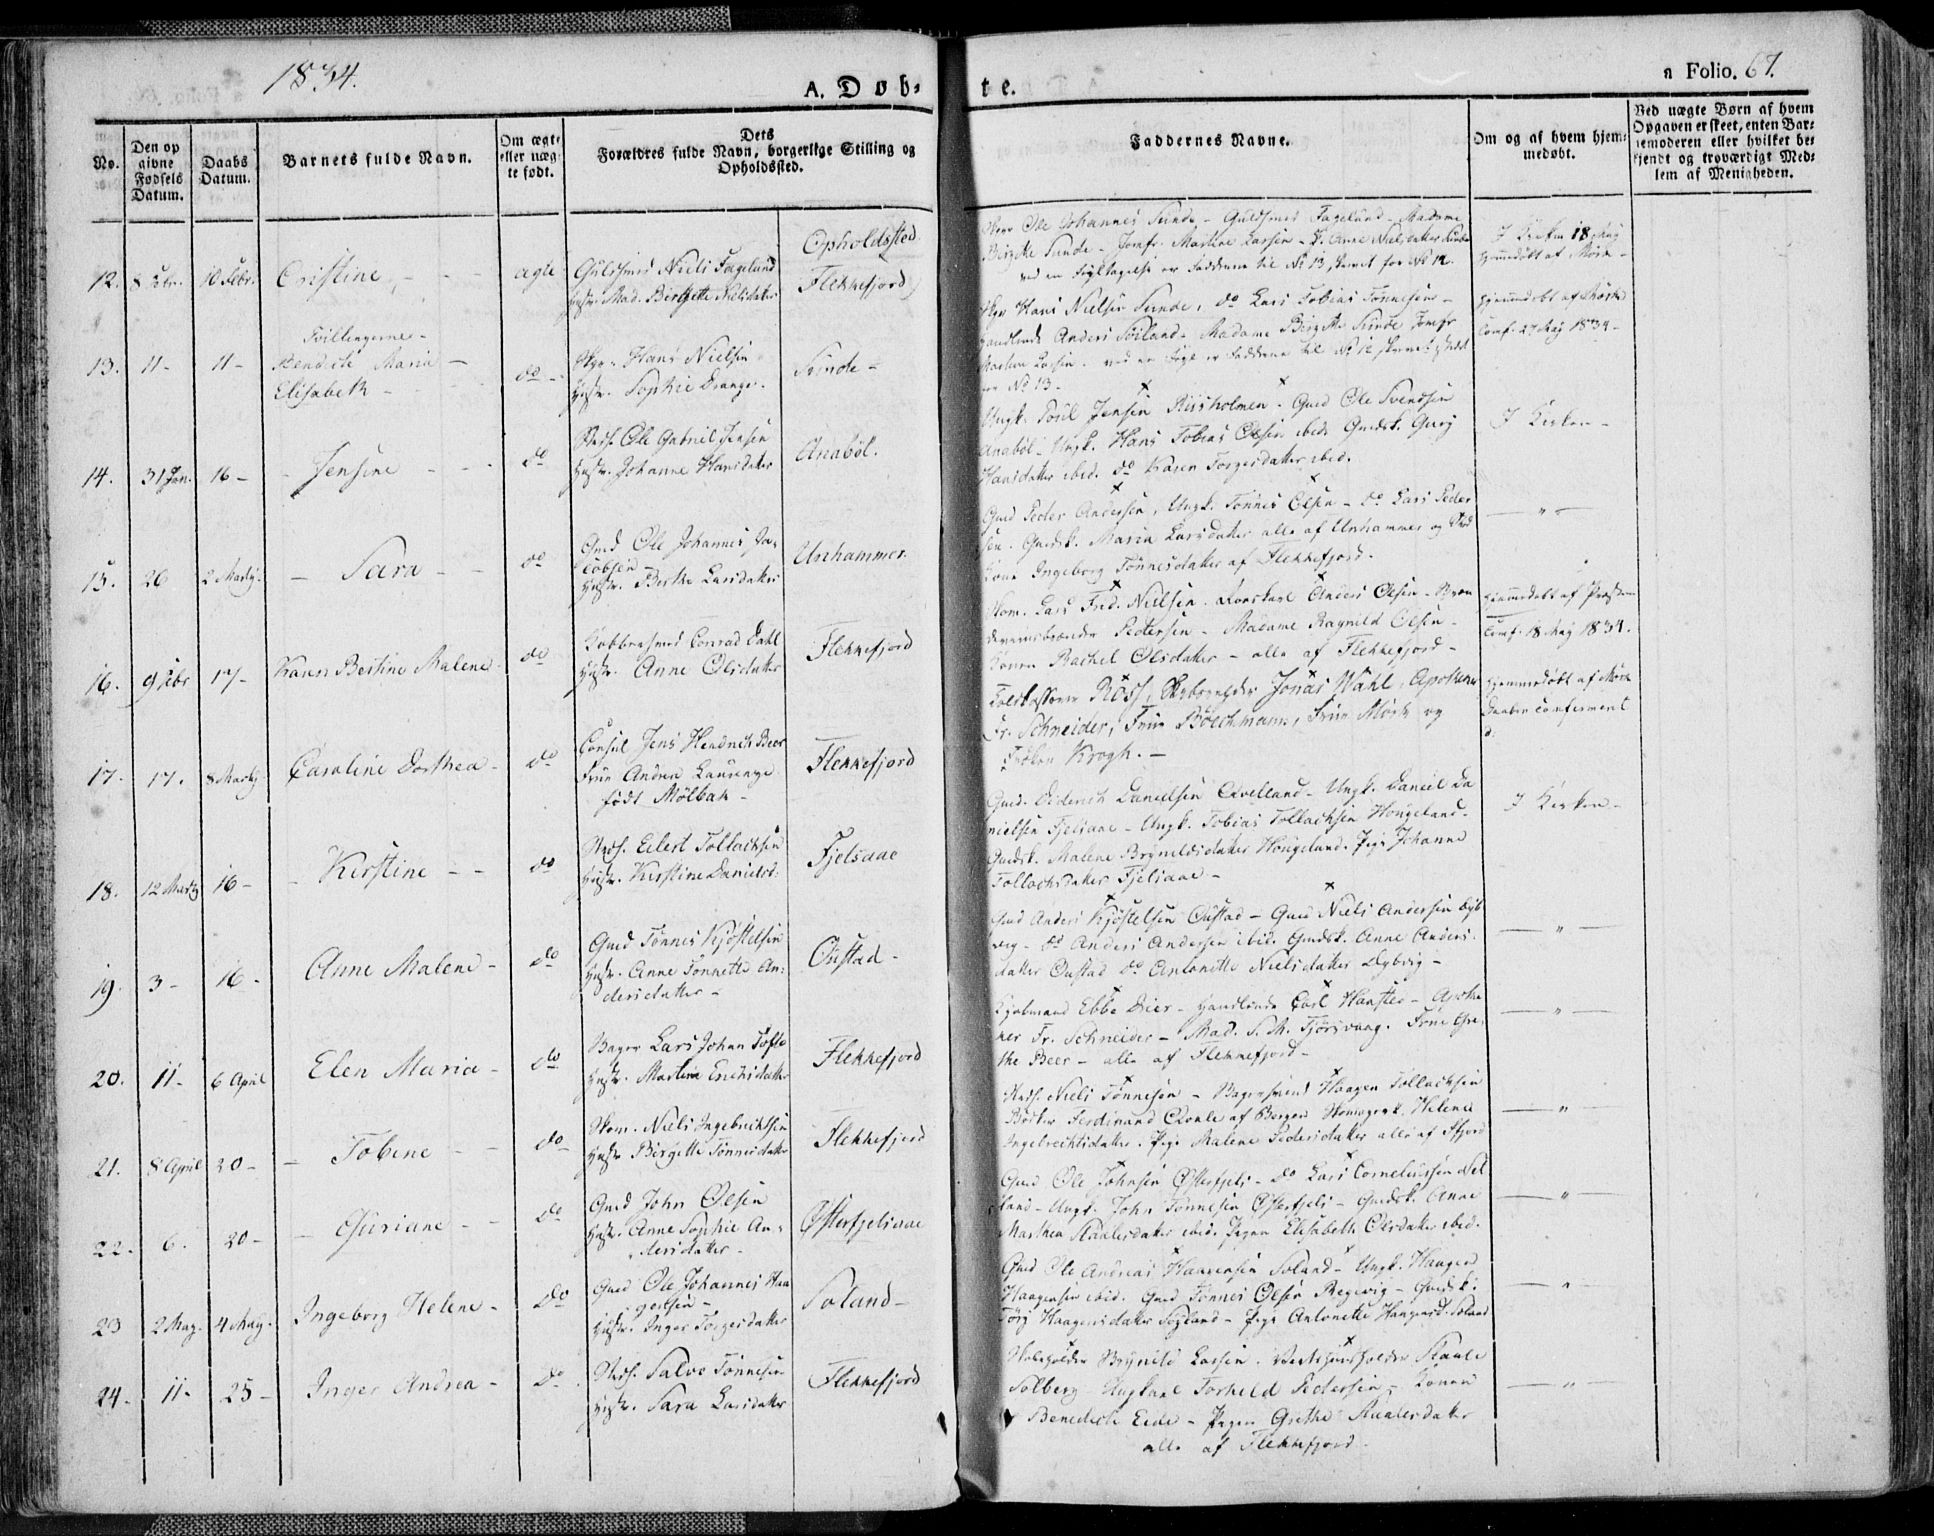 1834.
A. Døb-
te.
n Folio. 67.
No.
Den op
givne
Fødsels
Datum.
Daabs
Datum.
Barnets fulde Navn.
Om ægte
eller uæg-
te født.
Dets
Forældres fulde Navn, borgerlige Stilling og
Opholdssted.
Faddernes Navne.
Om og af hvem hjem-
medøbt.
Ved uægte Børn af hvem
Opgaven er skeet, enten Bar-
nemoderen eller hvilket be-
kjendt og troværdigt Med-
lem af Menigheden.
Opholdssted
12. 8 Febr. 10 Febr. Cristine, ægte
Guldsmed Niels Fageland
Hustr. Mad. Birthette Nielsdatter
Flekkefjord
Ole Johannes Sunde - Guldsmed Fageland - Madame
Birgitte Sunde - Jomfr. Martine Larsen - Anne Nielsdatter Sunde
ved en Fejltagelse er Fadderne til No 13, skrevet for No 12.
I Kirken 18 May
hjemmedøbt af Mørk -
Tvillingerne -
13. 11 - 11 - Bendicte Maria -
Elisabeth - do -
Hans Nielsen
Hustr. Sophie Drange.
Sunde -
Hans Nielsen Sunde, do Lars Tobias Tønnesen -
Handlende Anders Soiland - Madame Birgitte Sunde Jomfr
Martine Larsen. ved en Fejl er Fadderne til No 12 skrevet istedet
for No 13 -
hjemmedøbt af Mørk
Conf. 27 May 1834 -
14. 31 Jan. 16 - - Jensine - - - do
Ole Gabriel Jensen
Hustr. Johanne Hansdatter
Anabøl.
Ungk. Poul Jensen Riisholmen. Gmd Ole Svendsen
Anabøl - Ungk. Hans Tobias Olsen ibid. Gmdsk. Gurj
Hansdatter ibid. do Karen Torgersdatter ibid.
I Kirken -
15. 26 2 Martj. - Sara - - do
Gmd Ole Johannes Ja-
cobsen -
Hustr. Berthe Larsdatter
Urshammer
Gmd Peder Andersen, Ungk. Tønnes Olsen - do Lars Peder
sen. Gmdsk. Maria Larsdatter alle af Urshammer og
Kone Ingeborg Tønnesdatter af Flekkefjord.
— " —
16. 9 Febr 17 - Karen Bertine Malene - do
Kobbersmed Conrad Dahl
Hustr. Anne Olsdatter
Flekkefjord
Skom. Lars Fred. Nielsen. Anders Olsen - Bræn
deviinsbrænder Pedersen - Madame Ragnild Olsen -
Konen Rachel Olsdatter - alle af Flekkefjord -
hjemmedøbt af Præsten
Conf. 18 May 1834.
17. 17. 8 Martj Caroline Dorthea - do
Consul Jens Hendrich Beer
Frue Andrea Laurenze
født Mølbak -
Flekkefjord
Ross, Jonas Wahl, Apotheker
Fr. Schneider, Frue Boeckmann, Frue Mørk og
Frøken Krogh. -
hjemmedøbt af Mørk
Daaben confirmeret
18. 12 Martj 16 - - Kirstine - - do
Eilert Tollachsen
Hustr. Kirstine Danielsd:
Fjelsaae
Gmd. Diderich Danielsen Qvelland - Ungk. Daniel Da
nielsen Fjelsaae - Ungk. Tobias Tollachsen Høugeland -
Gmdsk. Malene Bryneldsdatter Høugeland. Pige Johanne
Tollachsdatter Fjelsaae -
I Kirken -
19. 3 - 16 - Anne Malene - do
Gmd Tønnes Kjøstelsen
Hustr. Anne Tonnette An-
dersdatter -
Oustad -
Gmd Anders Kjøstelsen Oustad - Gmd Niels Andersen Dyb
vig - do Anders Andersen ibid. Gmdsk. Anne Anders-
datter Oustad do Antonette Nielsdatter Dybvig -
— " —
20. 11 - 6 April Elen Maria - do
Bager Lars Johan Tofte
Hustr. Martina Erichsdatter
Flekkefjord
Kjøbmand Ebbe Beer - Handlende Carl Hansteen - Apothe
ker Fr. Schneider - Mad. S. M. Tjörsvaag. Frue Gre-
the Beer - alle af Flekkefjord -
— " —
21. 8 April 20 - - Tobine - - do
Skom. Niels Ingebrechtsen
Hustr Birgitte Tønnesdatter
Flekkefjord
Niels Tønnesen - Bagersvend Haagen Tollachsen
Bødker Ferdinand af Bergen Helene
Ingebrechtsdatter. Pige Malene Pedersdatter alle af Ffjord
— " —
22. 6. 20 - - Guriane - - do
Gmd John Olsen
Hustr. Anne Sophie An-
dersdatter -
Østerfjelsaae
Gmd Ole Johnsen Østerfjels - do Lars Corneliussen Net
land - Ungk. John Tønnesen Østerfjels - Gmdsk. Anne
Marthea Staalesdatter ibid. Pigen Elisabeth Olsdatter ibid.
— " —
23 2 May. 4 May. Ingeborg Helene - Do
Gmd Ole Johannes Haa
gensen -
Hustr. Inger Torgersdatter
Soland -
Gmd Ole Andreas Haagensen Soland - Ungk. Haagen
Haagensen ibid. Gmd Tønnes Olsen Regevig - Gmdsk:
Tørj Haagensdatter Søyland - Pige Antonette Haagensd. Soland
— " —
24. 11 - 25 - Inger Andrea - Do
Salve Tønnesen
Hustr. Sara Larsdatter
Flekkefjord
Skoleholder Brynild Larsen. Vertshuusholder Staale
Solberg - Ungkarl Torkeld Pedersen - Konen
Benedicte Eide - Pigen Grethe Staalesdatter
alle af Flekkefjord -
— " —